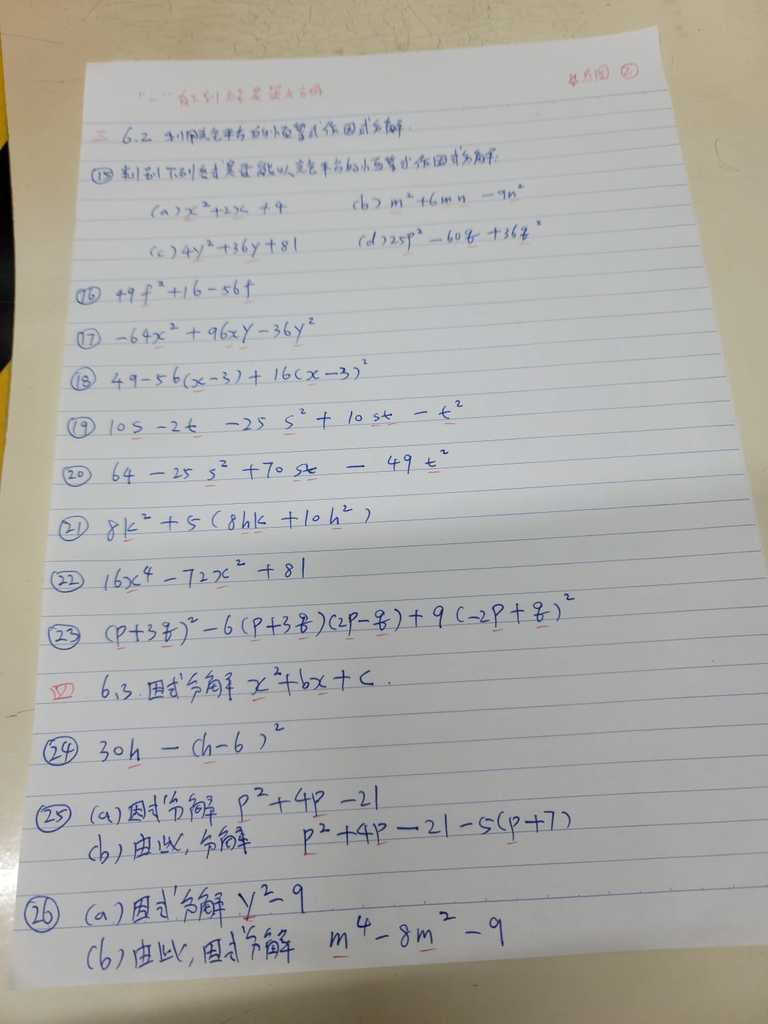 "一"
②
三 6.2 利用完全平方的恆等式作因式分解.
⑮ 判別下列各式是否能以完全平方的恆等式作因式分解.
(a) x²+2x+4 (b) m²+6mn-9n²
(c) 4y²+36y+81 (d) 25p²-60q+36q²
⑯ 49f²+16-56f
⑰ -64x²+96xy-36y²
⑱ 49-56(x-3)+16(x-3)²
⑲ 10s-2t-25s²+10st-t²
⑳ 64-25s²+70st-49t²
㉑ 8k²+5(8hk+10h²)
㉒ 16x⁴-72x²+81
㉓ (p+3q)²-6(p+3q)(2p-q)+9(-2p+q)²
四 6.3.因式分解 x²+bx+c.
㉔ 30h-(h-6)²
㉕ (a) 因式分解 p²+4p-21
(b) 由此,分解 p²+4p-21-5(p+7)
㉖ (a) 因式分解 y²-9
(b) 由此,因式分解 m⁴-8m²-9